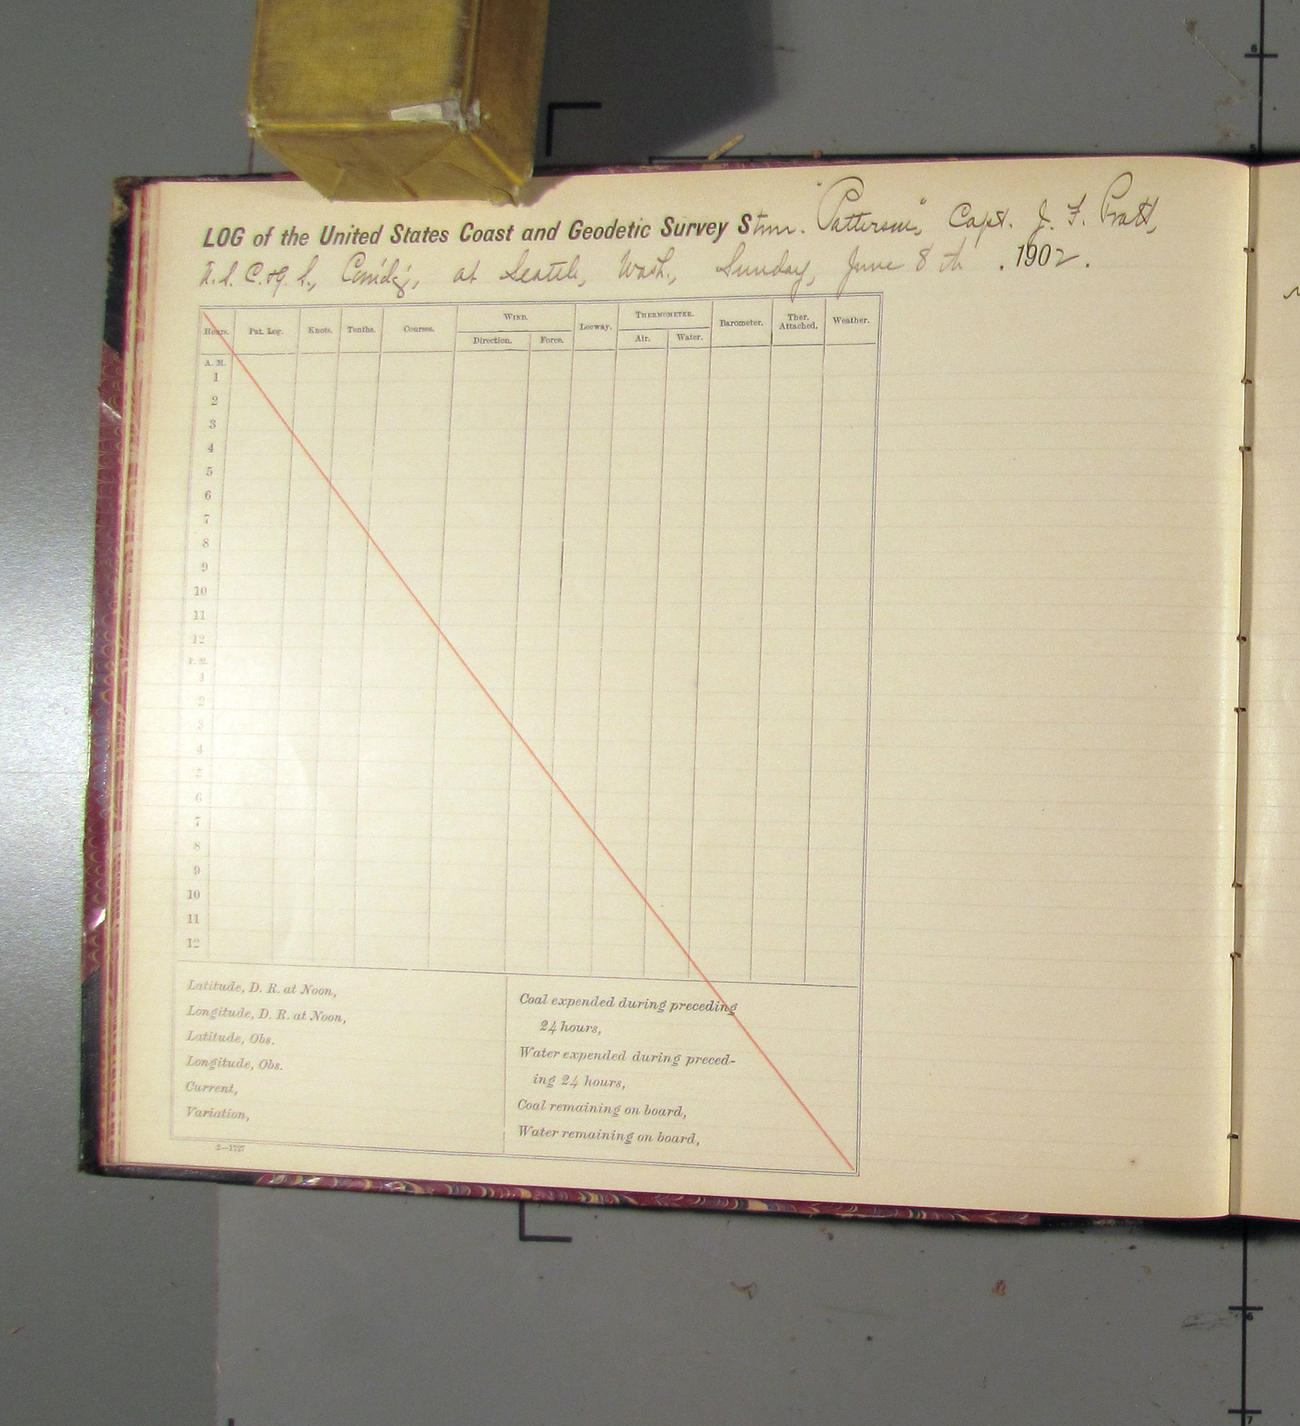 LOG of the United States Coast and Geodetic Survey Stmr. "Patterson," Capt. J. F. Pratt,
U. S. C. & G. S., Com'd'g, at Seattle, Wash., Sunday, June 8th, 1902.
Hours. Pat. Log. Knots. Tenths. Courses. WIND. Leeway. THERMOMETER. Barometer. Ther. Attached. Weather.
Direction. Force. Air. Water.
A. M.
1
2
3
4
5
6
7
8
9
10
11
12
P. M.
1
2
3
4
5
6
7
8
9
10
11
12
Latitude, D. R. at Noon,
Longitude, D. R. at Noon,
Latitude, Obs.
Longitude, Obs.
Current,
Variation,
Coal expended during preceding
24 hours,
Water expended during preced-
ing 24 hours,
Coal remaining on board,
Water remaining on board,
2—1727
6
5
6
7